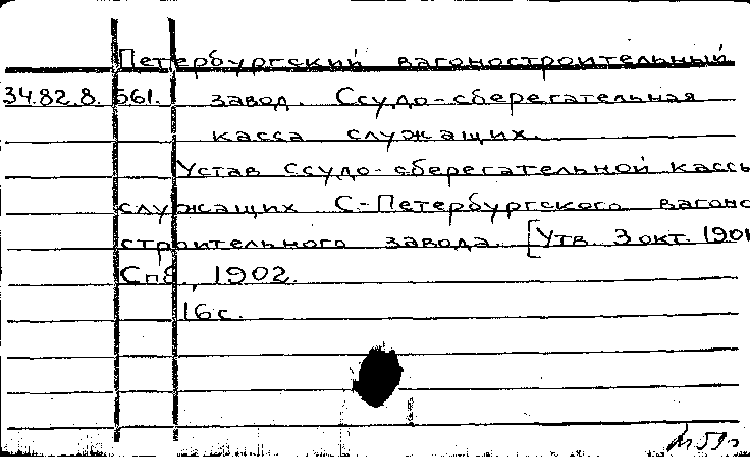 Петербургский вагоностроительный
34.82.8.561. завод. Ссудо-сберегательная
касса служащих.
Устав Ссудо-сберегательной кассы
служащих С.-Петербургского вагоно
строительного завода. [Утв. 3 окт. 1901
Спб., 1902.
16 с.